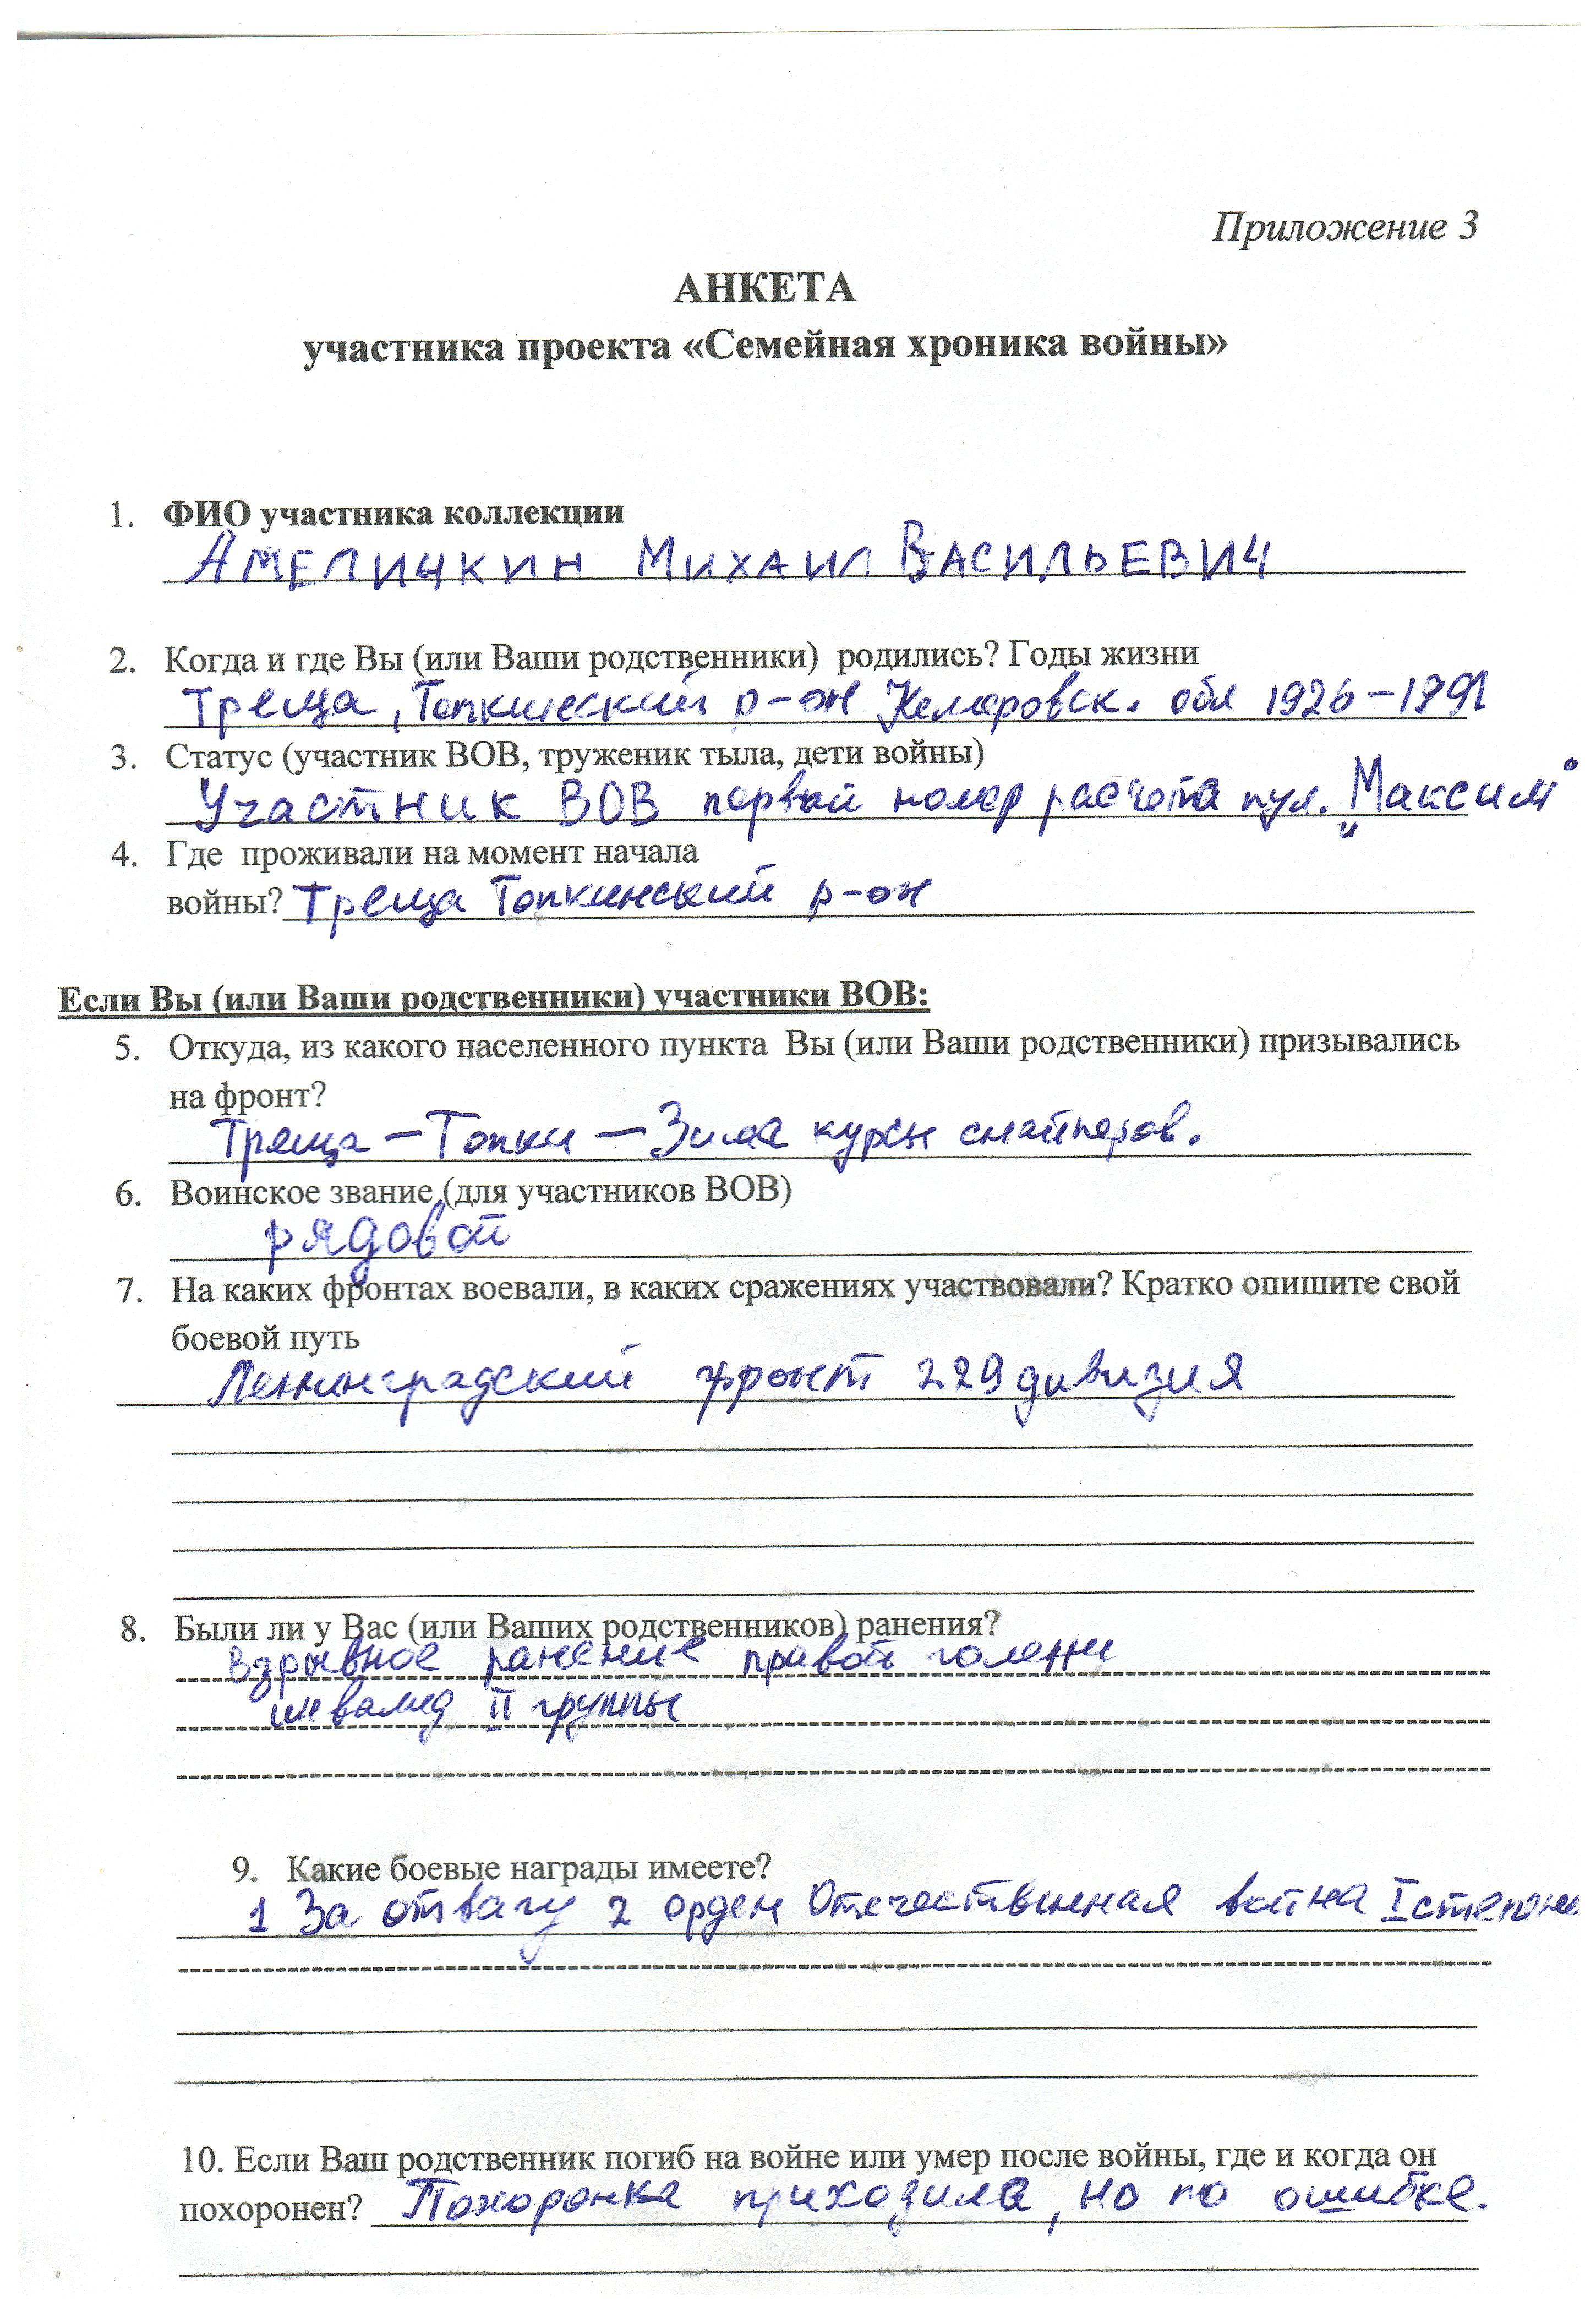 Приложение 3
АНКЕТА
участника проекта «Семейная хроника войны»
1. ФИО участника коллекции
АМЕЛИЧКИН МИХАИЛ ВАСИЛЬЕВИЧ
2. Когда и где Вы (или Ваши родственники) родились? Годы жизни
Треща, Топкинский р-он Кемеровск. обл 1926-1991
3. Статус (участник ВОВ, труженик тыла, дети войны)
Участник ВОВ первый номер расчета пул. „Максим"
4. Где проживали на момент начала
войны? Треща Топкинский р-он
Если Вы (или Ваши родственники) участники ВОВ:
5. Откуда, из какого населенного пункта Вы (или Ваши родственники) призывались
на фронт?
Треща – Топки – Зима курсы снайперов.
6. Воинское звание (для участников ВОВ)
рядовой
7. На каких фронтах воевали, в каких сражениях участвовали? Кратко опишите свой
боевой путь
Ленинградский фронт 229 дивизия
8. Были ли у Вас (или Ваших родственников) ранения?
Взрывное ранение правой голени
инвалид II группы
9. Какие боевые награды имеете?
1 За отвагу 2 орден Отечественная война I степени
10. Если Ваш родственник погиб на войне или умер после войны, где и когда он
похоронен? Похоронка приходила, но по ошибке.